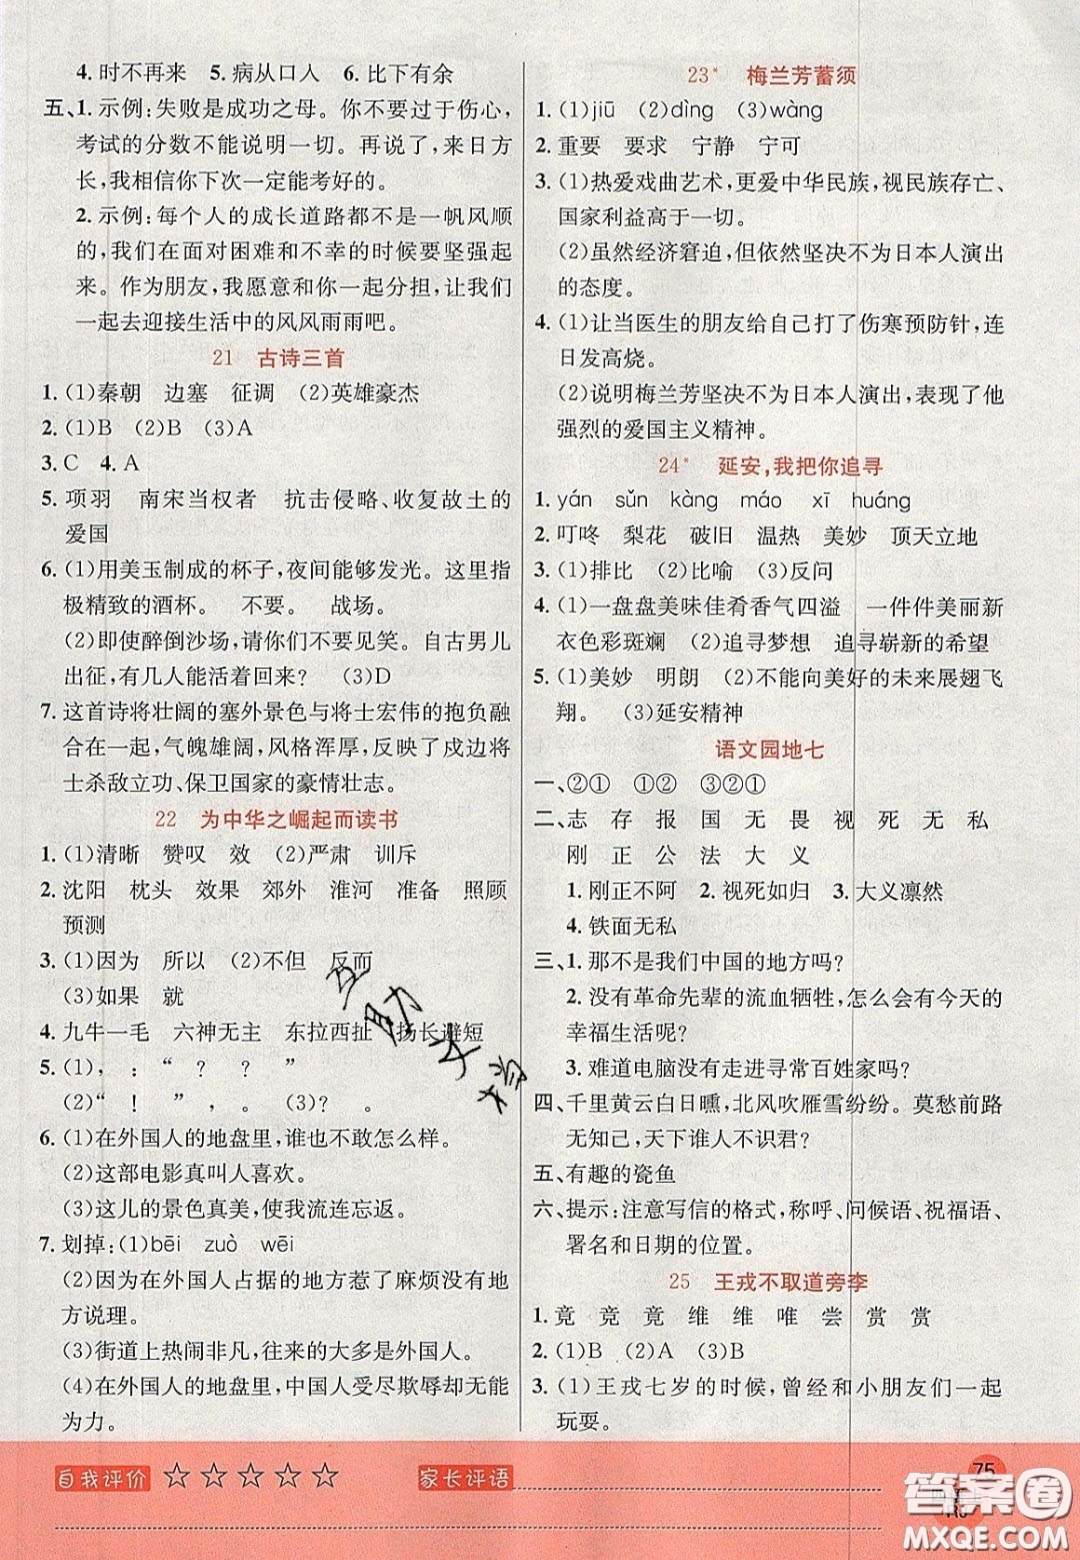 4. 时不再来 5. 病从口入 6. 比下有余
五、1. 示例:失败是成功之母。你不要过于伤心,
考试的分数不能说明一切。再说了,来日方
长,我相信你下次一定能考好的。
2. 示例:每个人的成长道路都不是一帆风顺
的,我们在面对困难和不幸的时候要坚强起
来。作为朋友,我愿意和你一起分担,让我们
一起去迎接生活中的风风雨雨吧。
21 古诗三首
1. (1)秦朝 边塞 征调 (2)英雄豪杰
2. (1)B (2)B (3)A
3. C 4. A
5. 项羽 南宋当权者 抗击侵略、收复故土的
爱国
6. (1)用美玉制成的杯子,夜间能够发光。这里指
极精致的酒杯。 不要。 战场。
(2)即使醉倒沙场,请你们不要见笑。自古男儿
出征,有几人能活着回来? (3)D
7. 这首诗将壮阔的塞外景色与将士宏伟的抱负融
合在一起,气魄雄阔,风格浑厚,反映了戍边将
士杀敌立功、保卫国家的豪情壮志。
22 为中华之崛起而读书
1. (1)清晰 赞叹 效 (2)严肃 训斥
2. 沈阳 枕头 效果 郊外 淮河 准备 照顾
预测
3. (1)因为 所以 (2)不但 反而
(3)如果 就
4. 九牛一毛 六神无主 东拉西扯 扬长避短
5. (1), : “ ? ? ”
(2)“ ! ” , 。 (3)? 。
6. (1)在外国人的地盘里,谁也不敢怎么样。
(2)这部电影真叫人喜欢。
(3)这儿的景色真美,使我流连忘返。
7. 划掉:(1)bēi zuò wēi
(2)因为在外国人占据的地方惹了麻烦没有地
方说理。
(3)街道上热闹非凡,往来的大多是外国人。
(4)在外国人的地盘里,中国人受尽欺辱却无能
为力。
23* 梅兰芳蓄须
1. (1)jiū (2)dìng (3)wàng
2. 重要 要求 宁静 宁可
3. (1)热爱戏曲艺术,更爱中华民族,视民族存亡、
国家利益高于一切。
(2)虽然经济窘迫,但依然坚决不为日本人演出
的态度。
4. (1)让当医生的朋友给自己打了伤寒预防针,连
日发高烧。
(2)说明梅兰芳坚决不为日本人演出,表现了他
强烈的爱国主义精神。
24* 延安,我把你追寻
1. yán sǔn kàng máo xī huáng
2. 叮咚 梨花 破旧 温热 美妙 顶天立地
3. (1)排比 (2)比喻 (3)反问
4. (1)一盘盘美味佳肴香气四溢 一件件美丽新
衣色彩斑斓 (2)追寻梦想 追寻崭新的希望
5. (1)美妙 明朗 (2)不能向美好的未来展翅飞
翔。 (3)延安精神
语文园地七
一、②① ①② ③②①
二、志 存 报 国 无 畏 视 死 无 私
刚 正 公 法 大 义
1. 刚正不阿 2. 视死如归 3. 大义凛然
4. 铁面无私
三、1. 那不是我们中国的地方吗?
2. 没有革命先辈的流血牺牲,怎么会有今天的
幸福生活呢?
3. 难道电脑没有走进寻常百姓家吗?
四、千里黄云白日曛,北风吹雁雪纷纷。莫愁前路
无知己,天下谁人不识君?
五、有趣的瓷鱼
六、提示:注意写信的格式,称呼、问候语、祝福语、
署名和日期的位置。
25 王戎不取道旁李
1. 竟 竞 竟 维 维 唯 尝 赏 赏
2. (1)B (2)A (3)B
3. (1)王戎七岁的时候,曾经和小朋友们一起
玩耍。
自我评价 ☆☆☆☆☆ 家长评语
75
RJ
答案圈
MXQE.COM